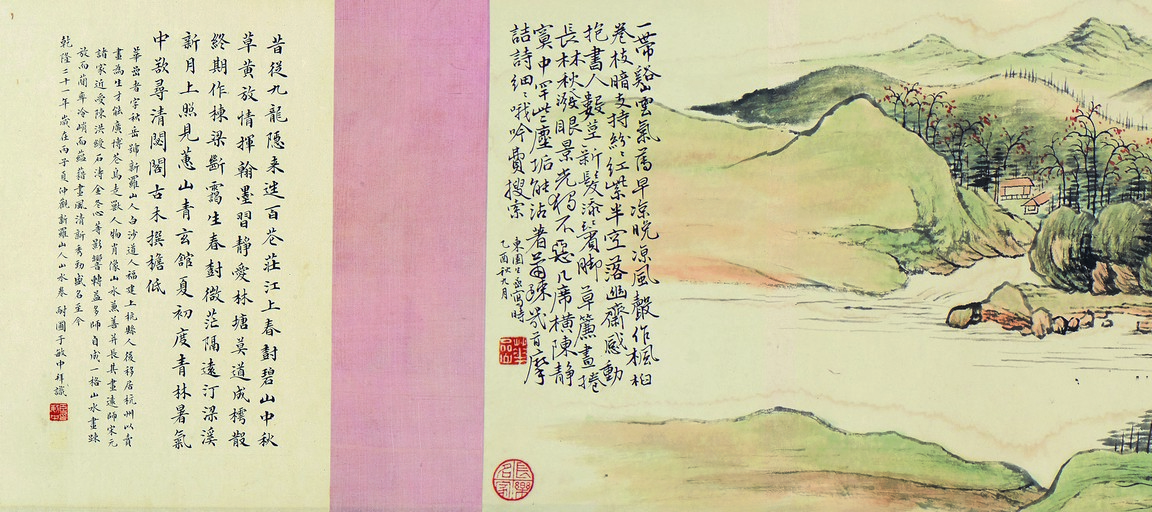 一帶谿山雲氣舊早凉晚凉風聲作楓柏
卷枝暗支持紛紛紅紫半空落幽齋感動
抱書人數莖新髮添賓脚草簾畫捲
長林秋潑眼景光猶不惡几席橫陳靜
寞中罕些塵垢能沾著爾疎百摩
詰詩細細哦吟費搜索
東園生喦寫時
乙酉秋九月
昔從九龍隱来迷百花莊江上春對碧山中秋
草黃放情揮翰墨習靜愛林塘莫道成樗散
終期作棟梁斷靄生春樹微茫隔遠汀梁溪
新月上照見蕙山青玄館夏初度青林暑氣
中欲尋清閟閣古木撰檐低
華喦者字秋岳號新羅山人白沙道人福建上杭縣人後移居杭州以賣
畫為生才能廣博花鳥走獸人物肖像山水兼善并長其畫遠師宋元
諸家近受陳洪綬石濤金冬心等影響轉益多師自成一格山水畫疎
放而蘭冷頑而蘊藉畫風清新秀勁成名至今
乾隆二十一年歲在丙子夏仲觀新羅山人山水卷 耐圃于敏中拜識